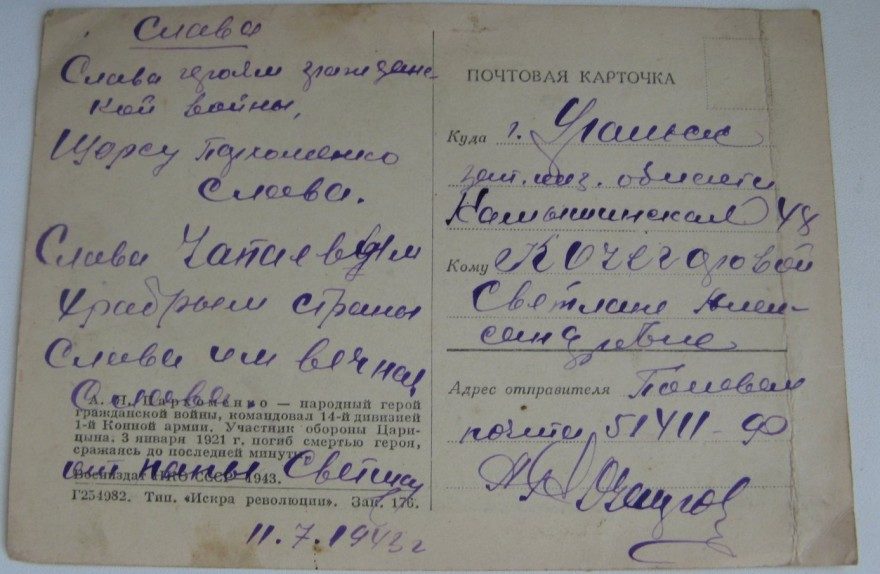 Слава
Слава героям граждан-
ской войны,
Щорсу Пархоменко
Слава.
Слава Чапаевцам
Храбрым страны
Слава им вечная
Слава.
А. Я. Пархоменко — народный герой
гражданской войны, командовал 14-й дивизией
1-й Конной армии. Участник обороны Цари-
цына. 3 января 1921 г. погиб смертью героя,
сражаясь до последней минуты.
от папы Светлане
Воениздат НКО СССР 1943.
Г254982. Тип. «Искра революции». Зак. 176.
11.7.1943 г
ПОЧТОВАЯ КАРТОЧКА
Куда г. Уральск
зап. каз. области
Камышинская 48
Кому Кочегаровой
Светлане Алек-
сандровне
Адрес отправителя Полевая
почта 51411-